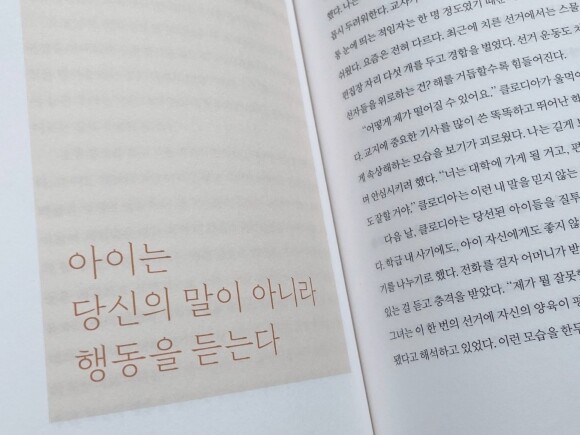 아이는
당신의 말이 아니라
행동을 듣는다
했다. 나는
몹시 두려워한다. 교사가
통 눈에 띄는 적임자는 한 명 정도였기 때문
쉬웠다. 요즘은 전혀 다르다. 최근에 치른 선거에서는 스물
편집장 자리 다섯 개를 두고 경합을 벌였다. 선거 운동도 치
선자들을 위로하는 건? 해를 거듭할수록 힘들어진다.
“어떻게 제가 떨어질 수 있어요.” 클로디아가 울먹이
다. 교지에 중요한 기사를 많이 쓴 똑똑하고 뛰어난 학
게 속상해하는 모습을 보기가 괴로웠다. 나는 길게 보
며 안심시키려 했다. “너는 대학에 가게 될 거고, 편
도 갈 거야.” 클로디아는 이런 내 말을 믿지 않는
다음 날, 클로디아는 당선된 아이들을 질투
다. 학급 내 사기에도, 아이 자신에게도 좋지 않
기를 나누기로 했다. 전화를 걸자 어머니가 받
있는 걸 듣고 충격을 받았다. “제가 뭘 잘못
그녀는 이 한 번의 선거에 자신의 양육이 평
됐다고 해석하고 있었다. 이런 모습을 한두